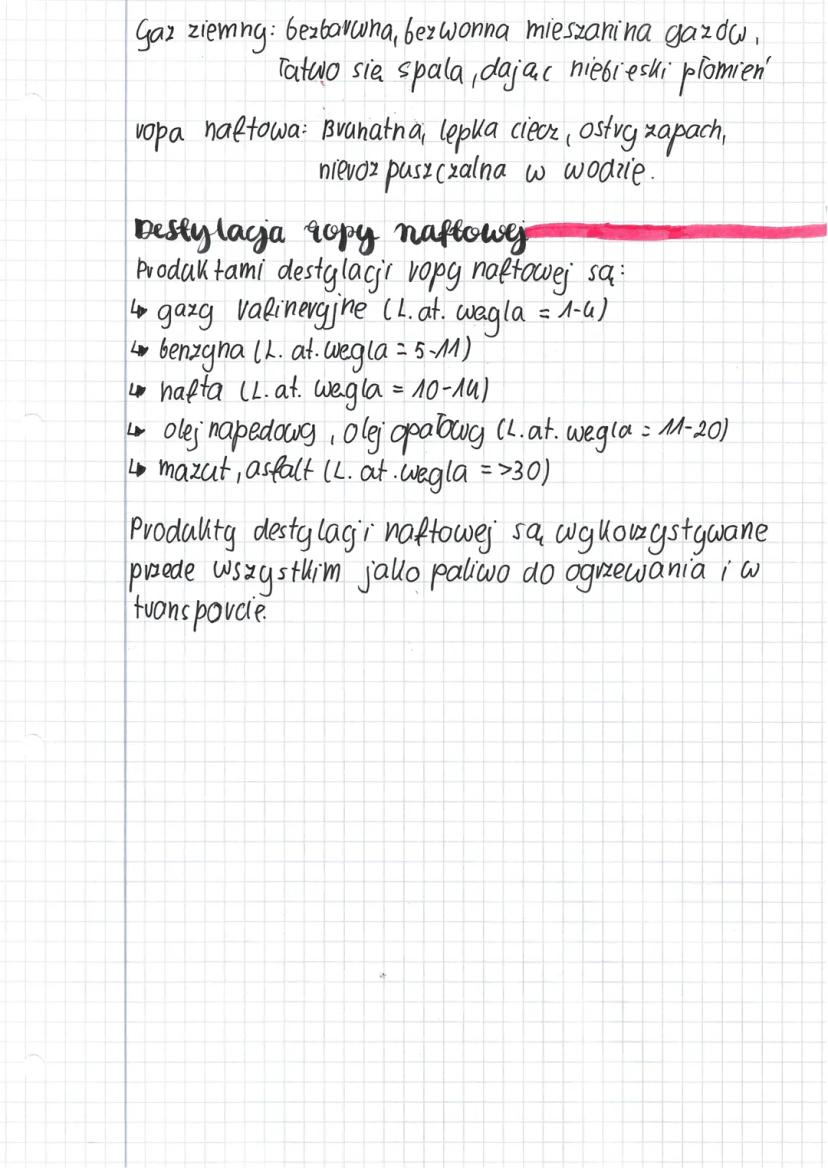 Gaz ziemny: bezbarwna, bezwonna mieszanina gazów,
łatwo się spala, dając niebieski płomień
ropa naftowa: Brunatna, lepka ciecz, ostry zapach,
nierozpuszczalna w wodzie.
Destylacja ropy naftowej
Produktami destylacji ropy naftowej są:
↳ gazy rafineryjne (L. at. węgla = 1-4)
↳ benzyna (L. at. węgla = 5-11)
↳ nafta (L. at. węgla = 10-14)
↳ olej napędowy, olej opałowy (L. at. węgla = 11-20)
↳ mazut, asfalt (L. at. węgla = >30)
Produkty destylacji naftowej są wykorzystywane
przede wszystkim jako paliwo do ogrzewania i w
transporcie.